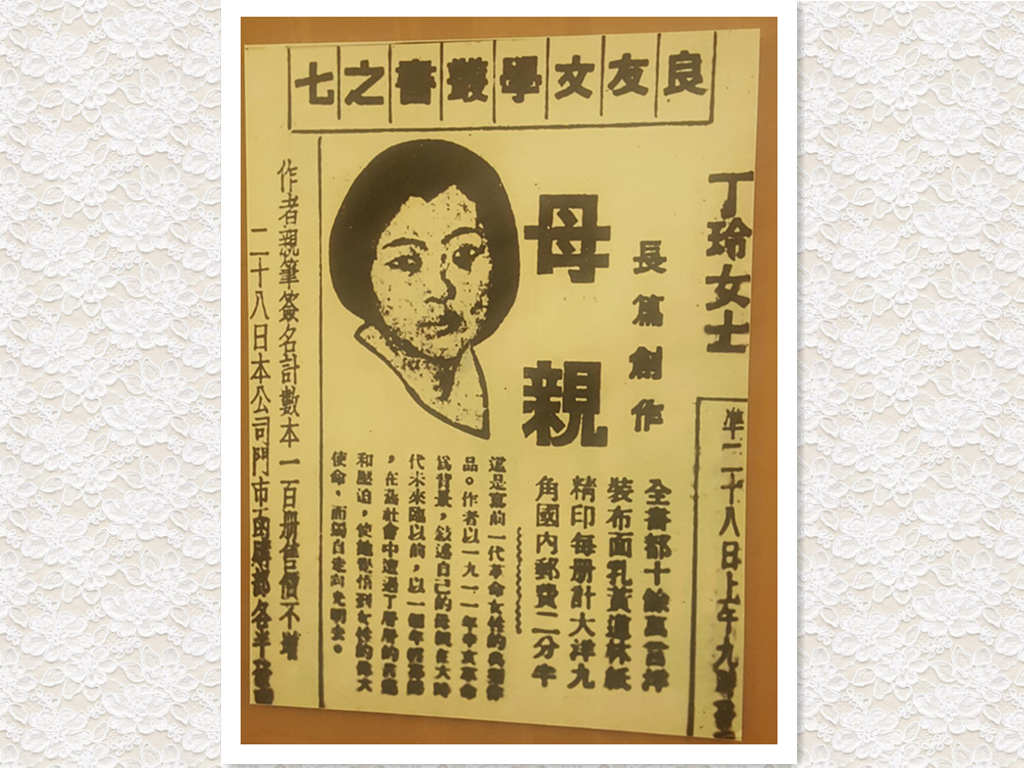 良友文學叢書之七
丁玲女士
準二十八日上午九時
長篇創作
母親
全書都十餘萬言
裝布面乳黃道林紙
精印每册計大洋九
角國內郵費二分半
這是寫前一代革命女性的典型作
品。作者以一九一一年辛亥革命
爲背景，敍述自己的母親在大時
代未來臨以前，以一個年輕寡婦
，在舊社會中遭遇了層層的苦難
和壓迫，使她覺悟到女性的偉大
使命，而獨自走向光明去。
作者親筆簽名計數本一百册售價不增
二十八日本公司門市